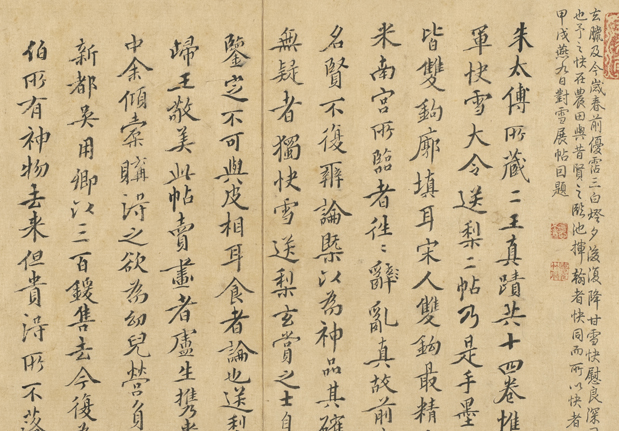 玄臘及今歲春前優霑三白燈夕後復降甘雪快慰良深
也予之快在農田與昔賢之臨池揮翰者快同而所以快者
甲戌燕九日對雪展帖因題
朱太傅所藏二王真蹟共十四卷惟
軍快雪大令送梨二帖乃是手墨
皆雙鉤廓填耳宋人雙鉤最精
米南宮所臨者往〻亂真故前
名賢不復辨論槩以為神品其確
無疑者獨快雪送梨玄賞之士自
鑒定不可與皮相耳食者論也送梨
歸王敬美此帖賣畫者盧生攜來
中余傾橐購得之欲為幼兒營負
新都吳用卿以三百鍰售去今復為
伯所有神物去來但貴得所不落